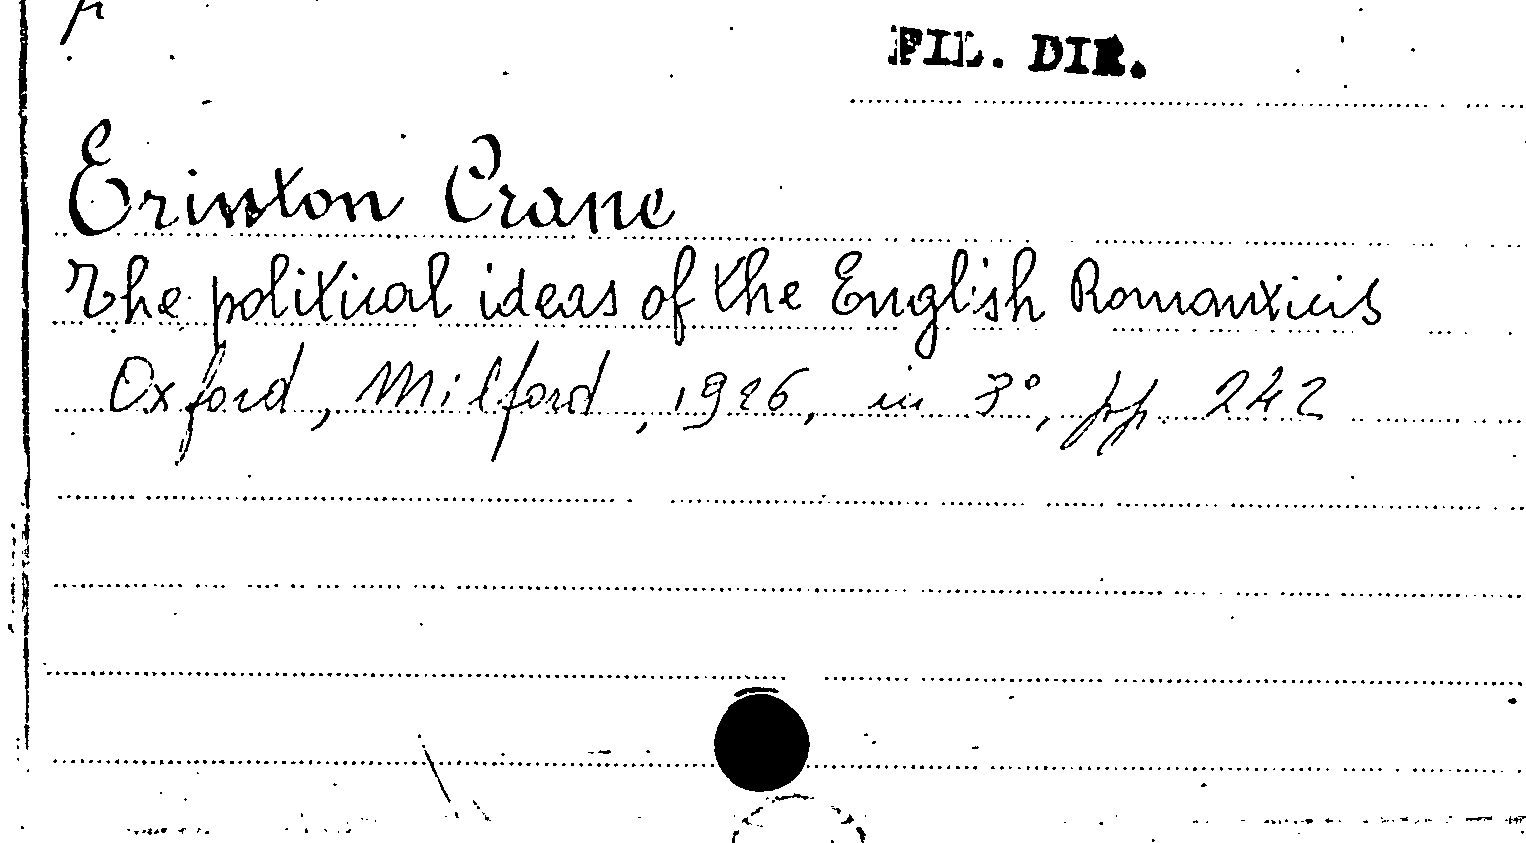 FIL. DIR.
Erinton Crane
The political ideas of the English Romanticis
Oxford, Milford, 1926, in 8°, pp. 242